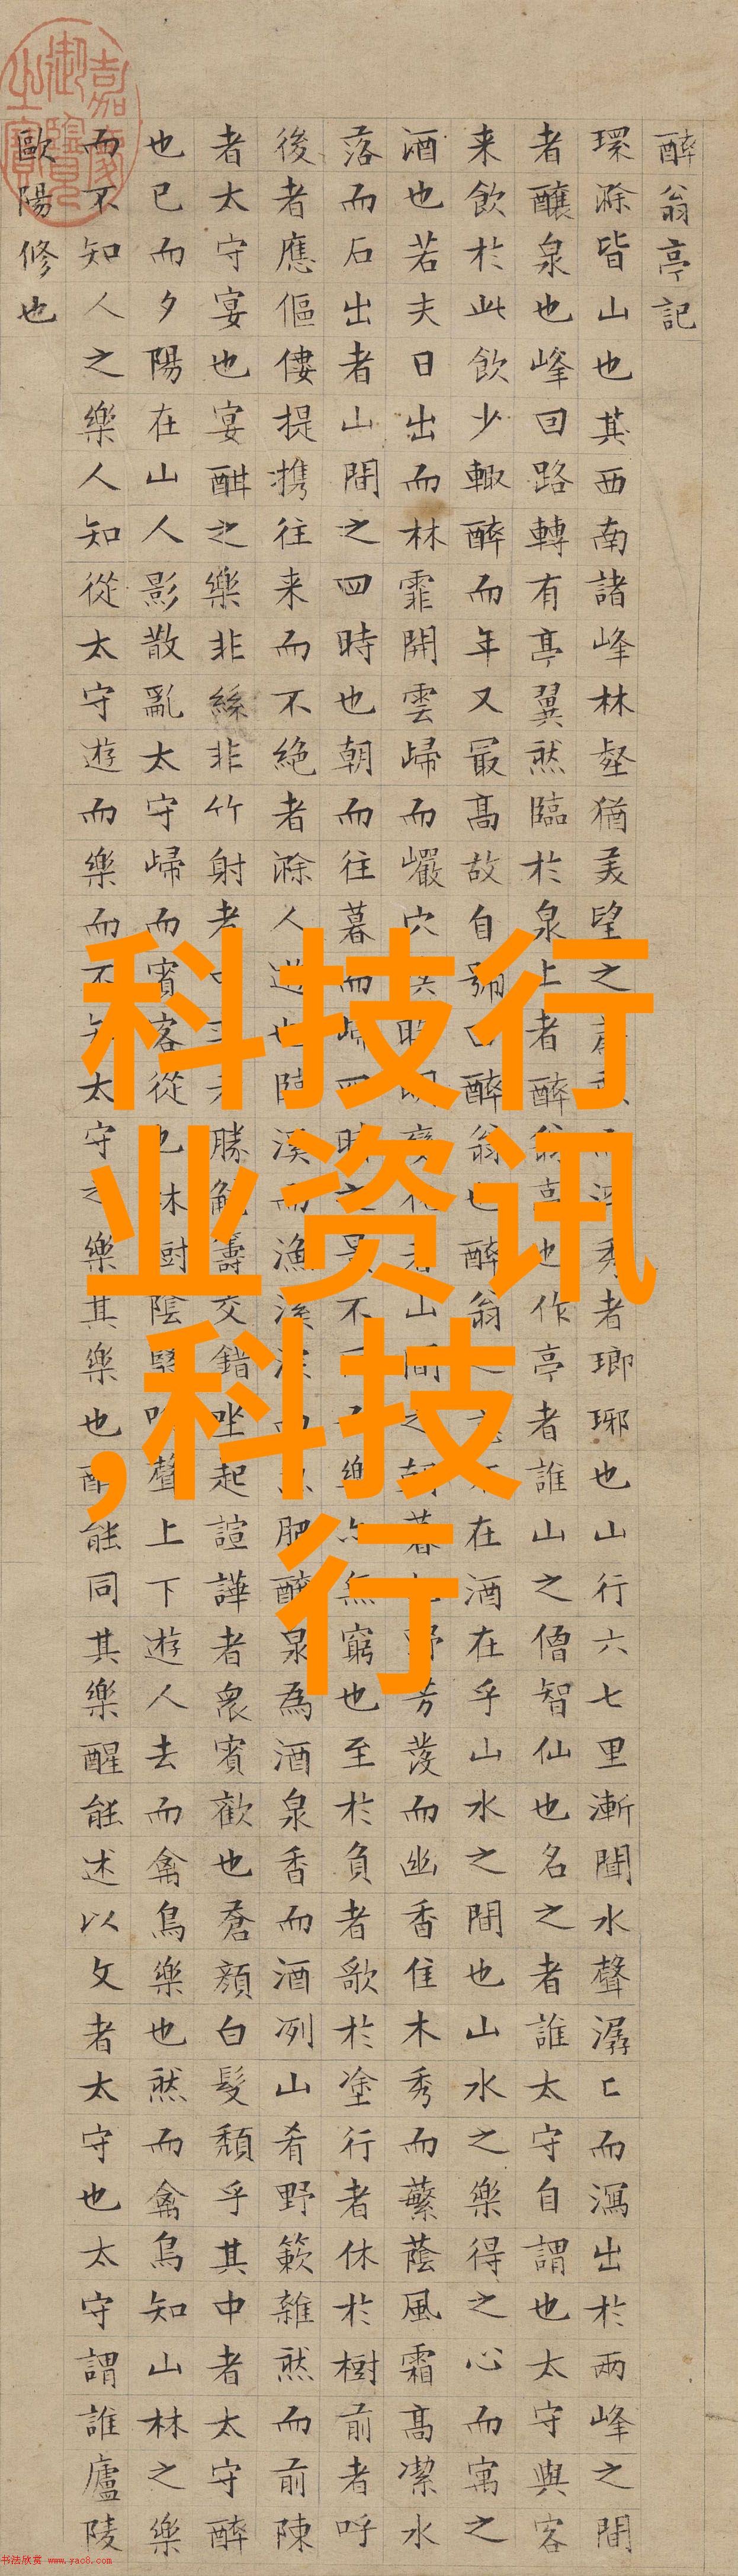 醉翁亭記
環滁皆山也其西南諸峰林壑猶美望之而秀者瑯琊也山行六七里漸聞水聲潺匕而瀉出於兩峰之間
者釀泉也峰回路轉有亭翼然臨於泉上者醉翁亭也作亭者誰山之僧智仙也名之者誰太守自謂也太守與客
来飲於此飲少輙醉而年又最高故自號醉翁也醉翁在酒在乎山水之間也山水之樂得之心而寓之
酒也若夫日出而林霏開雲歸而巖穴者山間之朝暮野芳發而幽香佳木秀而蘩蔭風霜高潔水
落而石出者山間之四時也朝而往暮而歸四時景不樂無窮也至於負者歌於塗行者休於樹前者呼
後者應傴僂提携往来而不絶者滁人遊也臨溪而漁溪深肥釀泉為酒泉香而酒冽山肴野簌雜然而前陳
者太守宴也宴酣之樂非絲非竹射者勝觥籌交錯坐起諠譁者衆賓歡也蒼顏白髮頹乎其中者太守醉
也已而夕陽在山人影散亂太守歸而賓客從也林樹陰翳聲上下遊人去而禽鳥樂也然而禽鳥知山林之樂
而不知人之樂人知從太守遊而樂而不知太守之樂其樂也醉能同其樂醒能述以文者太守也太守謂誰廬陵
歐陽修也
嘉慶御覽之寶
科技行
业资讯
,科技
行
书法欣赏 www.yac8.com